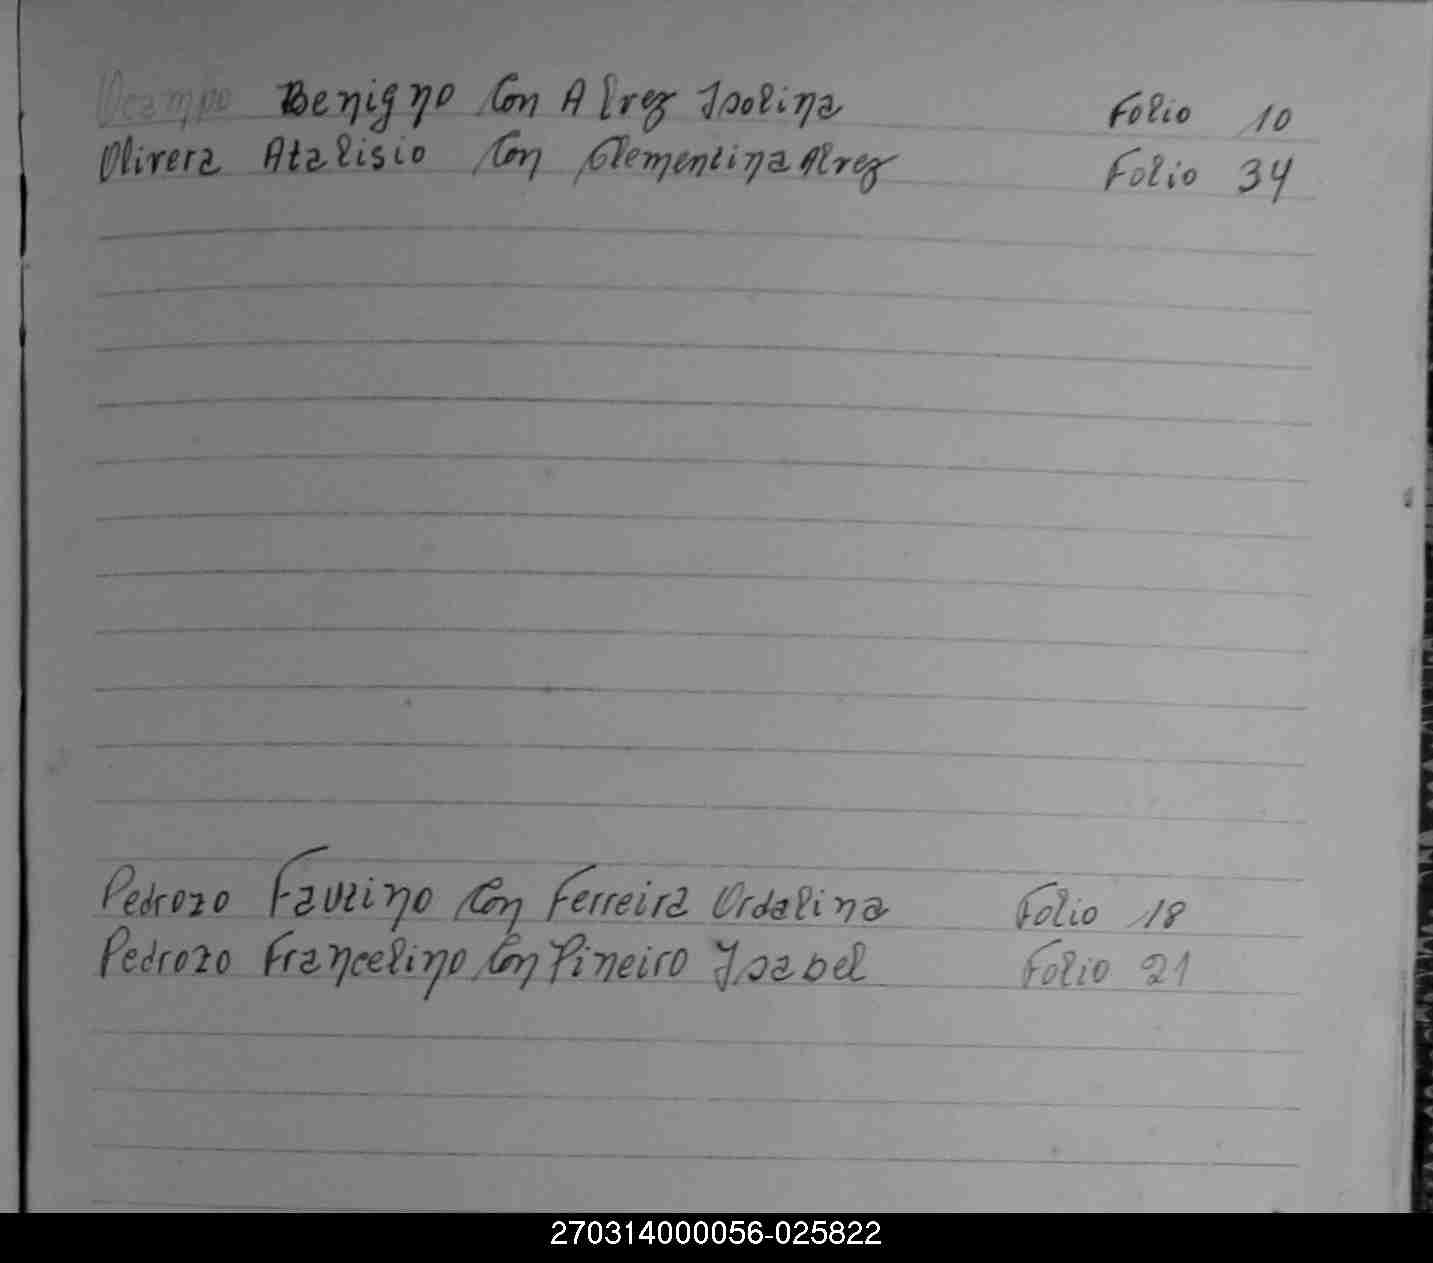 Ocampo Benigno Con Alvez Isolina Folio 10
Olivera Atalisio Con Clementina Alvez Folio 34
Pedrozo Faurino Con Ferreira Ordalina Folio 18
Pedrozo Francelino Con Pineiro Isabel Folio 21
270314000056-025822